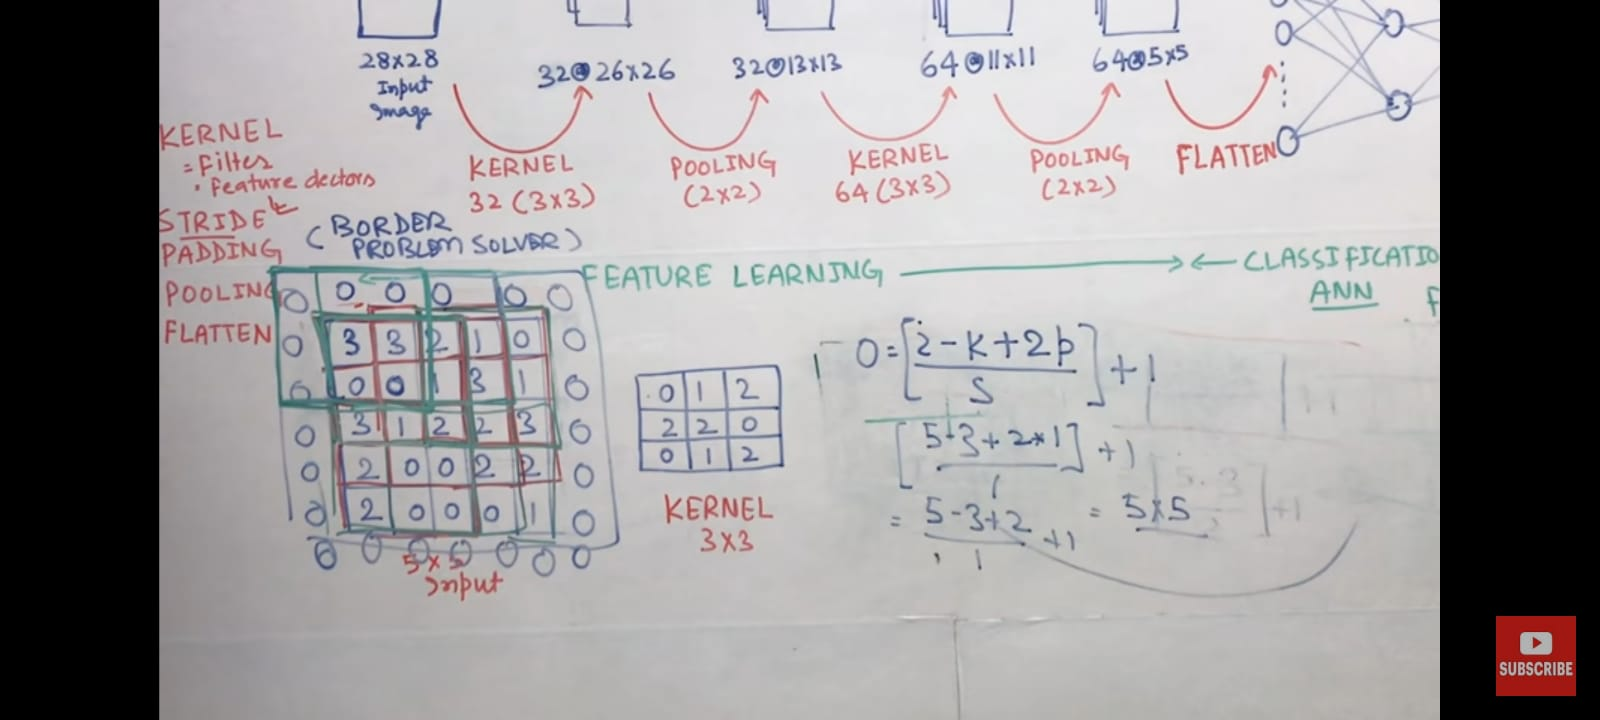 28x28
Input
Image
32@26x26
32@13x13
64@11x11
64@5x5
KERNEL
32 (3x3)
POOLING
(2x2)
KERNEL
64 (3x3)
POOLING
(2x2)
FLATTEN
KERNEL
= Filter
• Feature dectors
STRIDE
PADDING
(BORDER
PROBLEM SOLVER)
POOLING
FLATTEN
FEATURE LEARNING
CLASSIFICATIO
ANN
F
0 0 0 0 0 0
0 3 3 2 1 0 0
0 0 0 1 3 1 0
0 3 1 2 2 3 0
0 2 0 0 2 2 0
0 2 0 0 0 1 0
0 0 0 0 0 0 0
5x5
Input
0 1 2
2 2 0
0 1 2
KERNEL
3x3
O = [i-K+2p / S] + 1
[5-3+2*1 / 1] + 1
= 5-3+2 / 1 +1 = 5x5
SUBSCRIBE